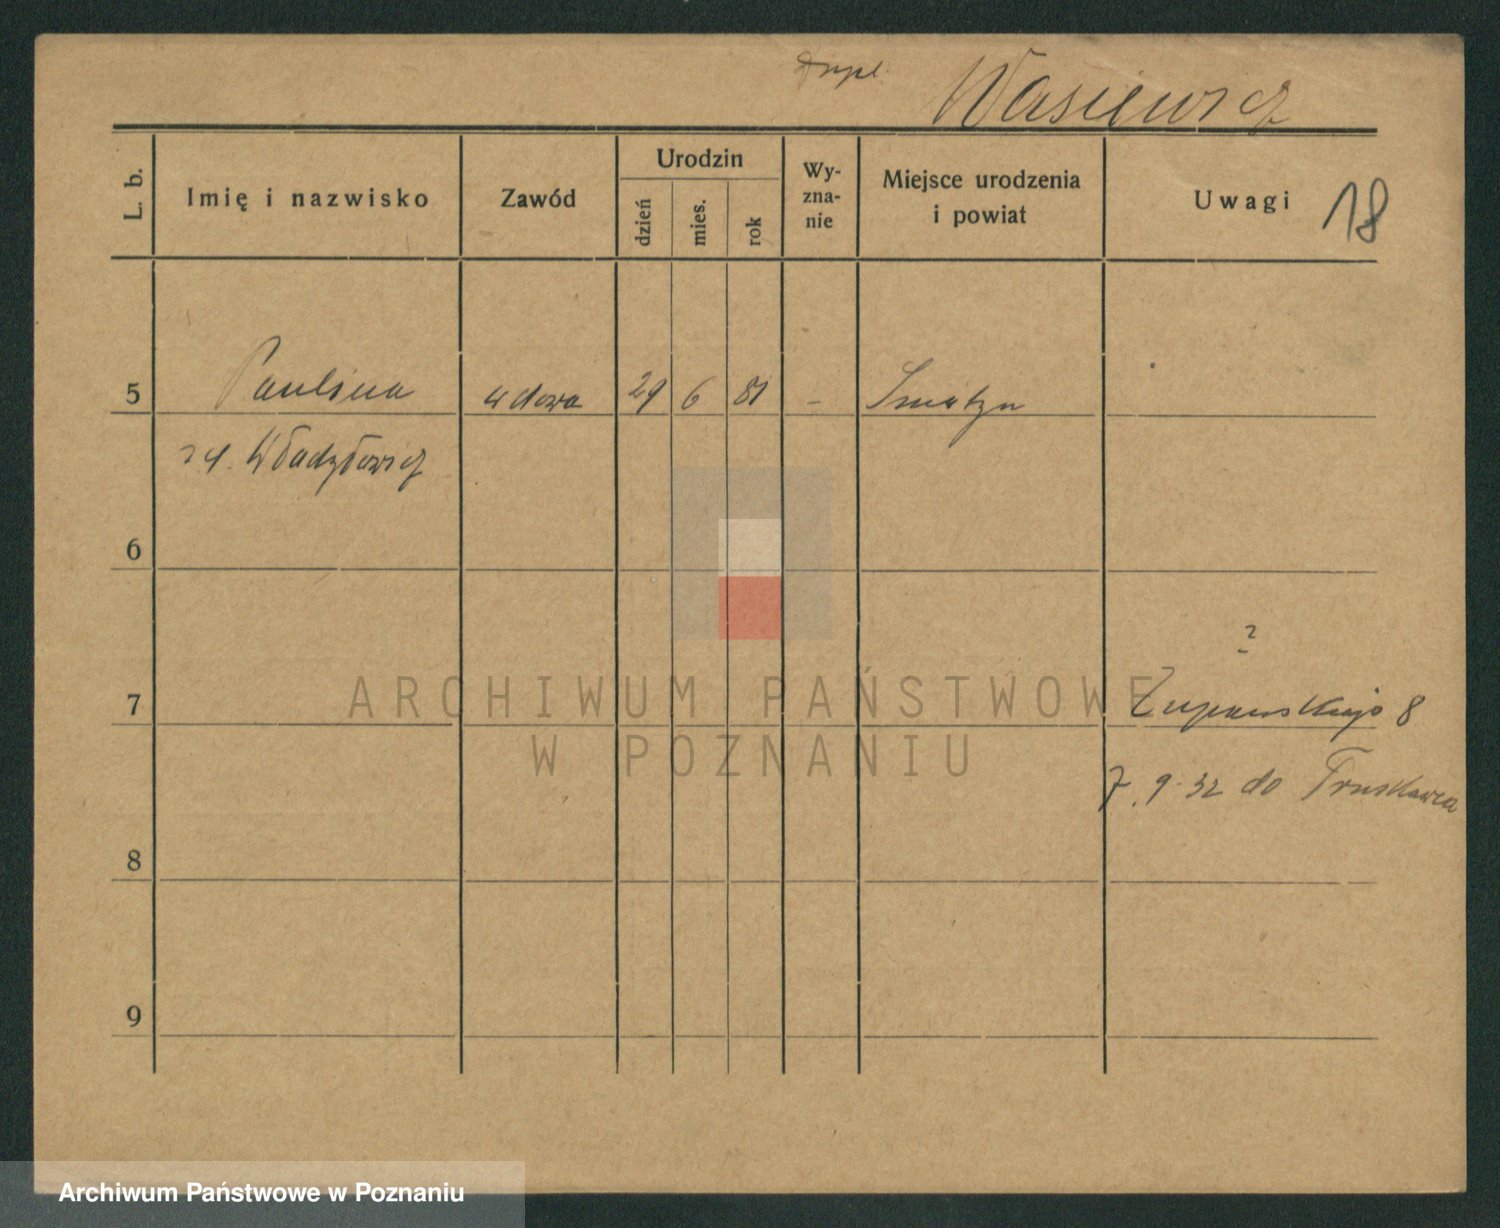 Dupl. Wasiewicz
L. b.
Imię i nazwisko
Zawód
Urodzin
dzień
mies.
rok
Wy-
zna-
nie
Miejsce urodzenia
i powiat
Uwagi 18
5 Paulina wdowa 29 6 81 –
zd. Władysłowicz
6
?
7 Żupańskiego 8
7.9.32 do Truskawca
8
9
ARCHIWUM PAŃSTWOWE
W POZNANIU
Archiwum Państwowe w Poznaniu